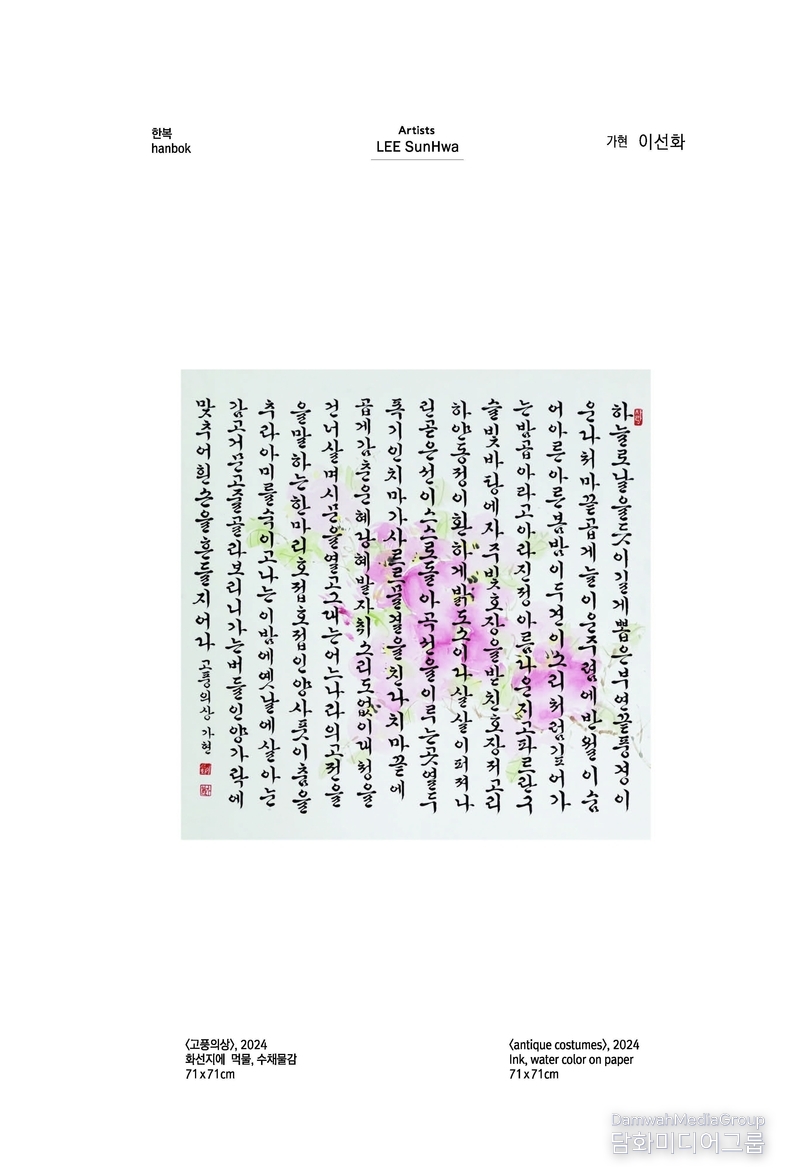 한복
hanbok
Artists
LEE SunHwa
가현 이선화
하늘로날을듯이길게뽑은부연끝풍경이
운다처마끝곱게늘이운주렴에반월이숨
어아른아른봄밤이두견이소리처럼깊어가
는밤곱아라고아라진정아름다운지고파르란구
슬빛바탕에자주빛호장을받친호장저고리
하얀동정이환하게밝도소이다살살이퍼져나
린곧은선이스스로돌아곡선을이루는곳열두
폭기인치마가사르르물결을친다치마끝에
곱게감춘운혜당혜발자취소리도없이대청을
건너살며시문을열고그대는어느나라의고전을
을말하는한마리호접호접인양사풋이춤을
추라아미를숙이고나는이밤에옛날에살아눈
감고거문고줄골라보리니가는버들인양가락에
맞추어흰손을흔들지어다 고풍의상 가현
〈고풍의상〉, 2024
화선지에 먹물, 수채물감
71 x 71cm
〈antique costumes〉, 2024
Ink, water color on paper
71 x 71cm
DamwahMediaGroup
담화미디어그룹